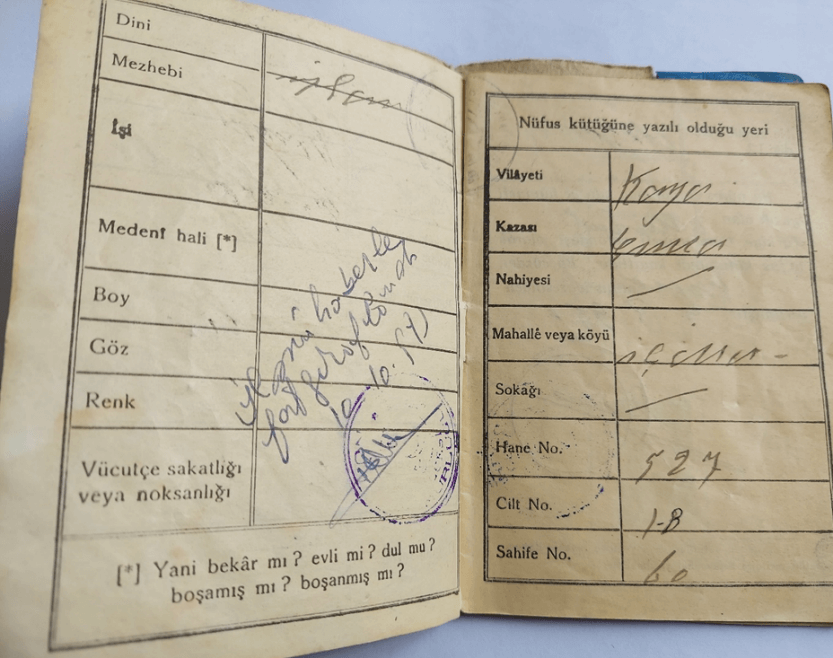 Dini
Mezhebi
islam
İşi
Medenî hali [*]
Boy
Göz
Renk
Vücutçe sakatlığı
veya noksanlığı
[*] Yani bekâr mı ? evli mi ? dul mu ?
boşamış mı ? boşanmış mı ?
Nüfus kütüğüne yazılı olduğu yeri
Vilâyeti
Kazası
Nahiyesi
Mahallê veya köyü
Sokağı
Hane No. 527
Cilt No. 1-8
Sahife No. 60